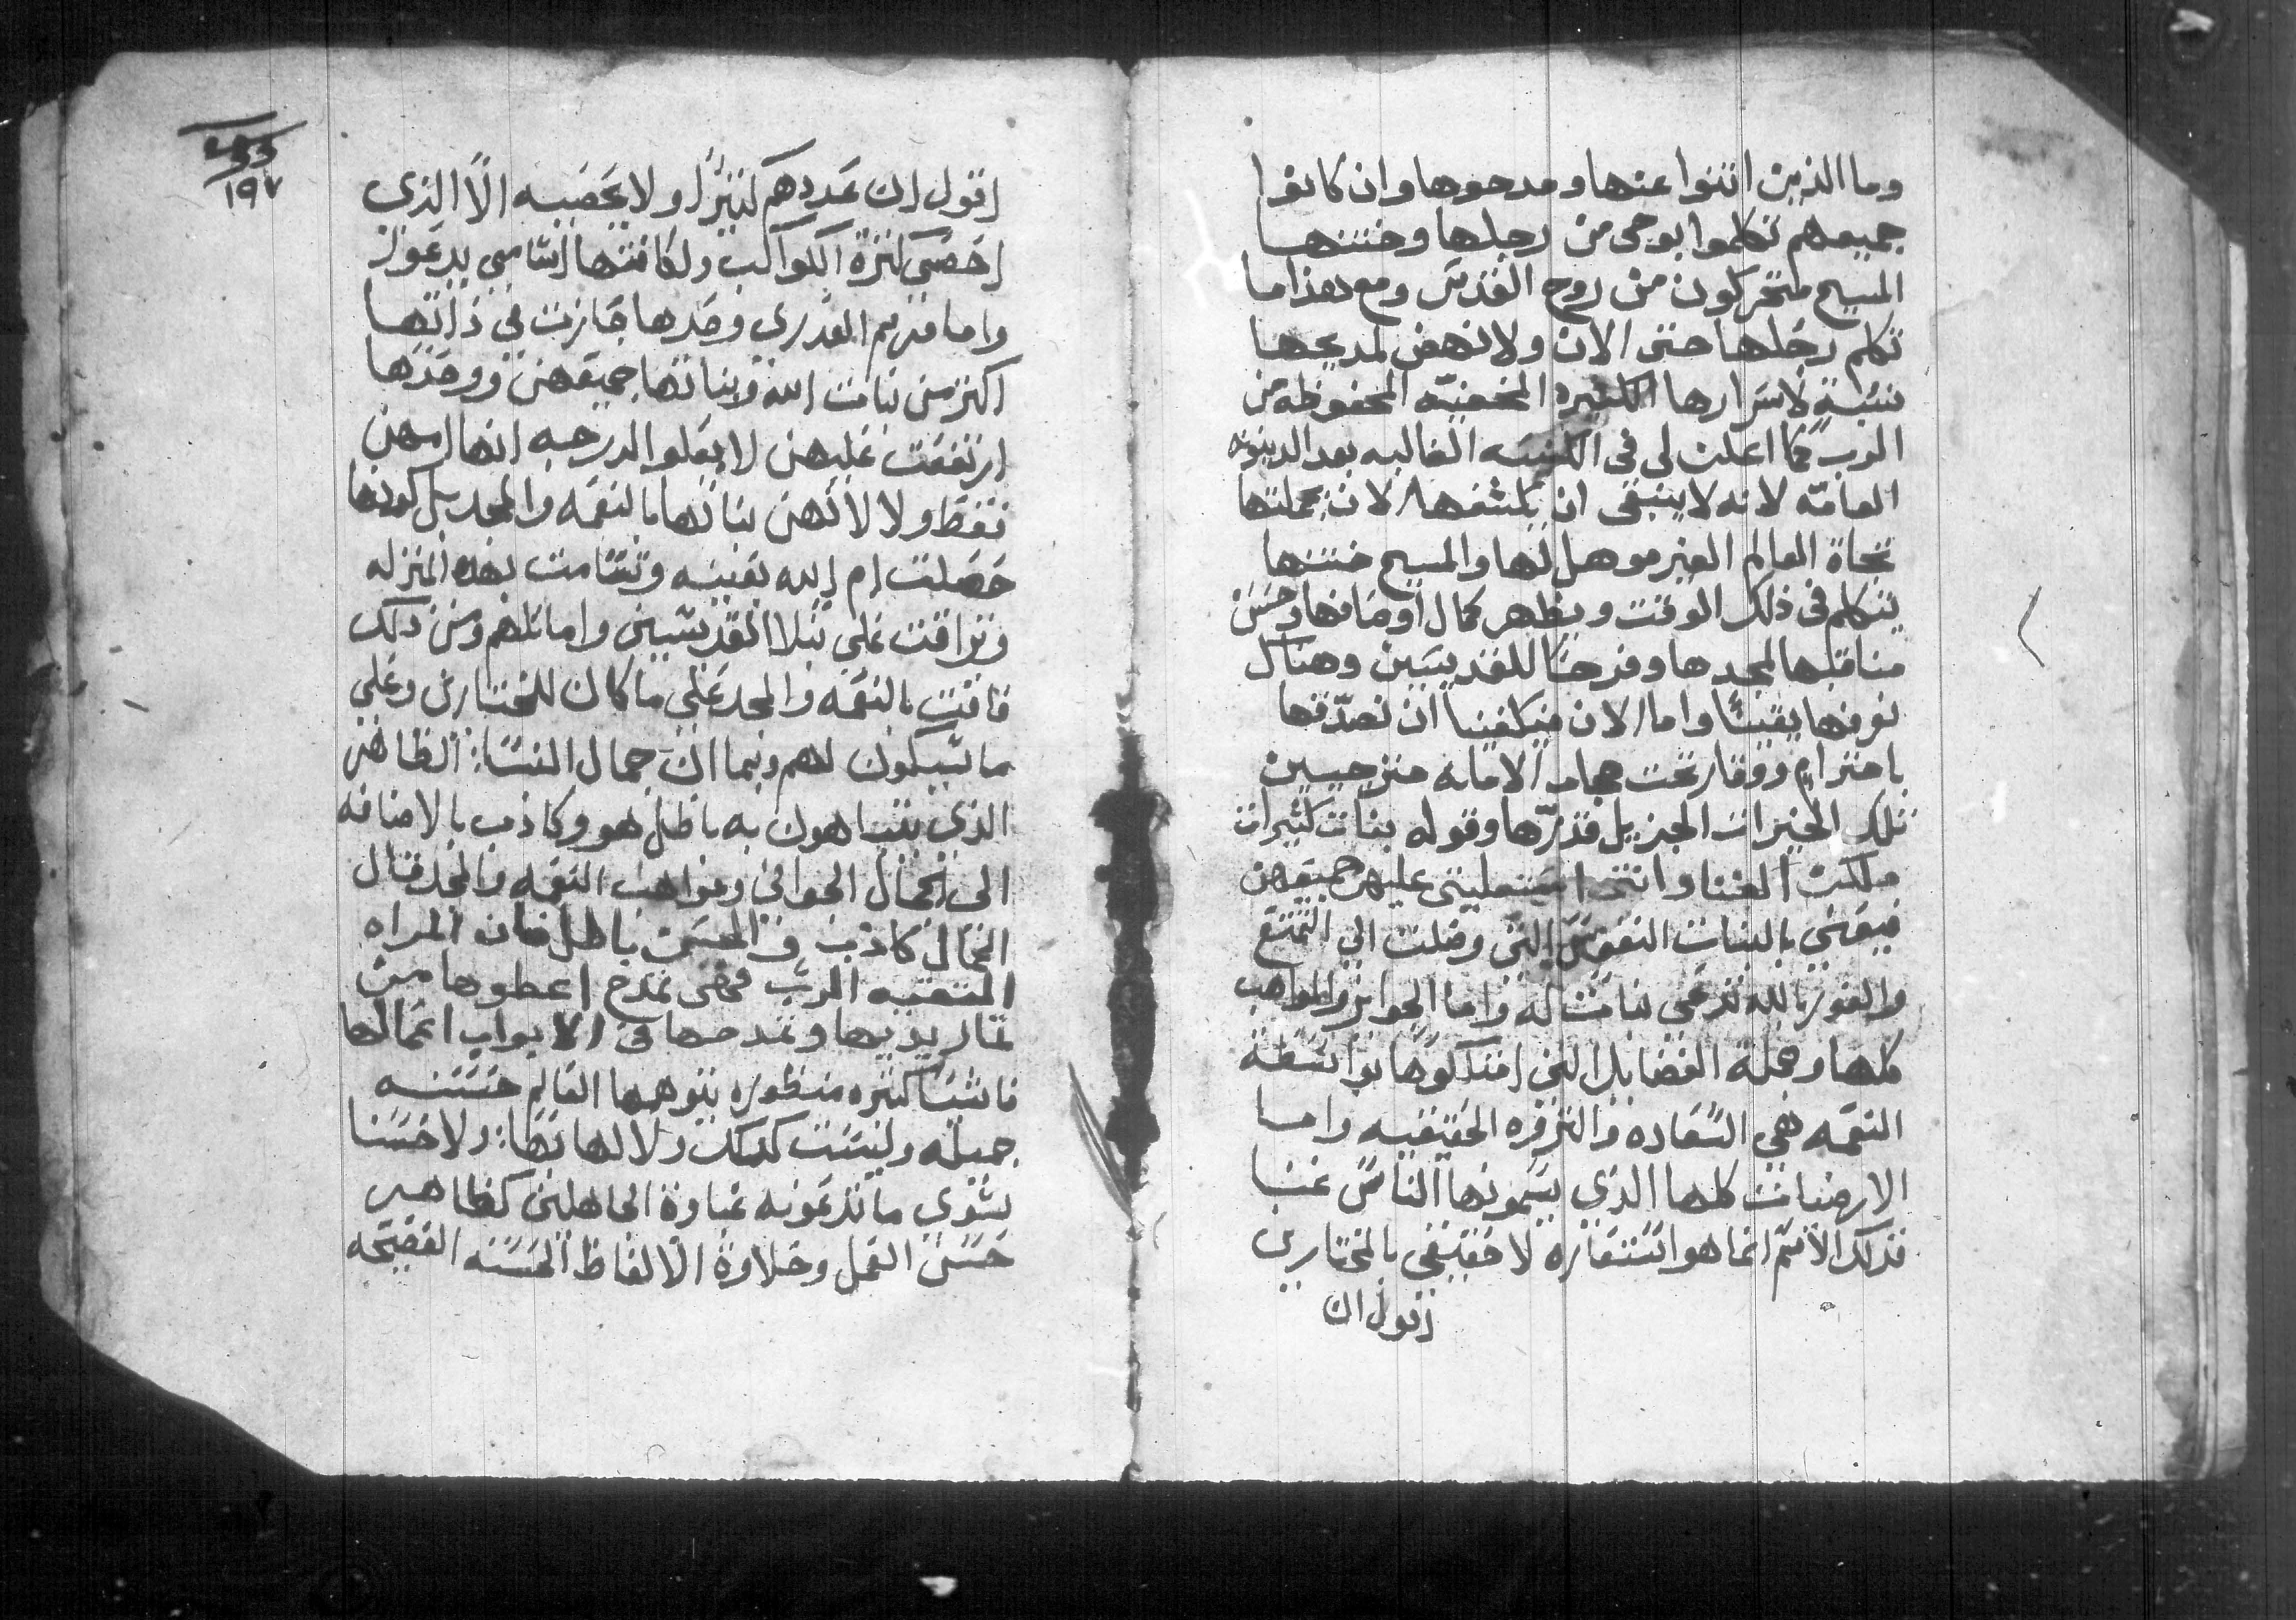 وما الذين اثنوا عنها ومدحوها وان كانوا
جميعهم تكلموا بوحى من رجلها وختنها
المسيح متحركون من روح القدس ومع هذا ما
تكلم رجلها حتى الان ولا نهض لمديحها
نسبة لاسرارها الكثيره المخفيّه المحفوظه من
الرب كما اعلن لى فى الكنيسه الغالبه بعد الدينونه
العامّه لانه لا ينبغى ان يكشفها الان بجملتها
تجاة العالم الغير موهل لها والمسيح ختنها
يتكلم فى ذلك الوقت ويظهر كمال اوصافها وحسن
مناقبها لمجدها وفرحًا للقديسين وهناك
نعرفها يقينًا واما الان فيكفينا ان نصدّقها
باحترامٍ ووقار تحت حجاب الامانه مترجيين
تلك الخيرات الجزيل قدرّها وقوله بنات كثيرات
ملكت الغنا وانتى استعليتى عليهن جميعهن
فيعنى بالبنات النفوس التى وصلت الى التمتع
والفوز بالله تدعى بنات له واما الجوايز والمواهب
كلها وجملة الفضايل التى امتلكوها بواسطة
النعمه هى السّعاده والثروه الحقيقيه واما
الارضيات كلها الذى يسمونها الناس غنا
فذلك الاسّم انما هو استعاره لا حقيقى بالمختارين
اقول ان
١٩٧
اقول ان عددهم كثيرًا ولا يحصيه الّا الذى
احصى كثرة الكواكب ولكافتها اسّامى يدعوا
واما مريم العدرى وحدها حازت فى ذاتها
اكثر من بنات الله وبناتها جميعهن ووحدها
ارتفعت عليهن لا بعلو الدرجه انها امهن
فقط ولا لانهن بناتها بالنعمه والمجد بل كونها
حصلت ام الله بعينه وتسّامت بهذه المنزله
وتراقت على نبلا القديسّين واماثلهم ومن ذلك
فاقت بالنعمه والمجد على ما كان للمختارين وعلى
ما سّيكون لهم وبما ان جمال النسّا الظاهر
الذى يتباهون به باطل هو وكاذب بالاضافه
الى الجمال الجوانى ومواهب النعمه والمجد قال
الجمال كاذب والحسّن باطل فان المراه
المتقيه الرب فهى تمدح اعطوها من
ثمار يديها وتمدحها فى الابواب اعمالها
فانسّا كثيره منظوره يتوهمها العالم حسّنه
جميله وليسّت كذلك ولا لها بها ولا حسّنا
سّوى ما تدعونه غباوة الجاهلين كظاهر
حسّن العمل وحلاوة الالفاظ الحسّنه الفصيحه